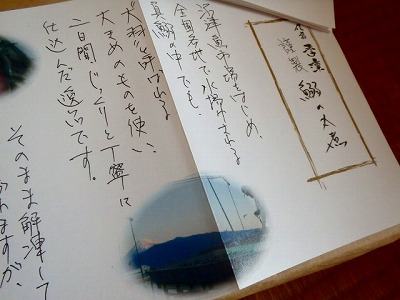 季凛
謹製 鰯の丸煮
沼津魚市場をはじめ、
全国各地で水揚げされる
真鰯の中でも、
"大羽"と呼ばれる
大きめのものを使い、
二日間じっくりと丁寧に
仕込んだ逸品です。
そのまま解凍して
れますが、